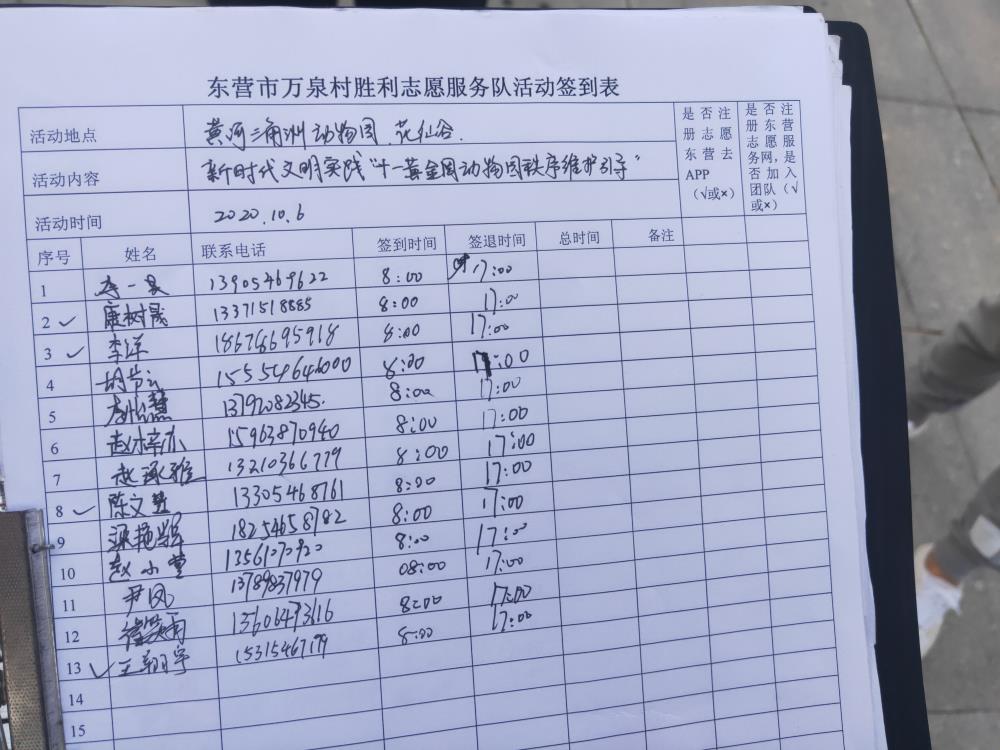 东营市万泉村胜利志愿服务队活动签到表
活动地点 黄河三角洲动物园、花仙谷 是否注册志愿东营去APP（√或×） 是否注册东营志愿服务网，是否加入团队（√或×）
活动内容 新时代文明实践“十一黄金周动物园秩序维护引导”
活动时间 2020.10.6
序号 姓名 联系电话 签到时间 签退时间 总时间 备注
1 李一泉 13905469622 8:00 17:00
2 ✓ 康树晟 13371518885 8:00 17:00
3 ✓ 李洋 18678695918 8:00 17:00
4 15554964000 8:00 17:00
5 13792082345. 8:00 17:00
6 赵梓亦 15963870940 8:00 17:00
7 赵承雅 13210366779 8:00 17:00
8 ✓ 陈文慧 13305468761 8:00 17:00
9 梁艳辉 18254658782 8:00 17:00
10 赵小雪 8:00 17:00
11 尹凤 08:00 17:00
12 13606493616 8:00 17:00
13 ✓ 王翔宇 8:00 17:00
14
15